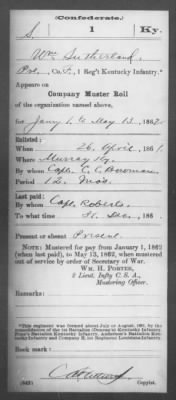 (Confederate.)
S. | 1 | Ky.
Wm Sutherland
Pvt., Co. F., 1 Reg't Kentucky Infantry.*
Appears on
Company Muster Roll
of the organization named above,
for Jany 1 to May 13, 1862.
Enlisted:
When 26 April, 1861.
Where Murray Ky.
By whom Capt. C. C. Bowman
Period 12 mos.
Last paid:
By whom Capt. Roberts
To what time 31 Dec., 1861.
Present or absent Present
NOTE: Mustered for pay from January 1, 1862
(when last paid), to May 13, 1862, when mustered
out of service by order of Secretary of War.
WM. H. PORTER,
2 Lieut. Infty C. S. A.,
Mustering Officer.
Remarks:
*This regiment was formed about July or August, 1861, by the
consolidation of the 1st Battalion (Duncan's) Kentucky Infantry,
Kentucky Infantry
Infantry and Company H, 1st Regiment Louisiana Infantry.
Book mark:
(642)
Copyist.